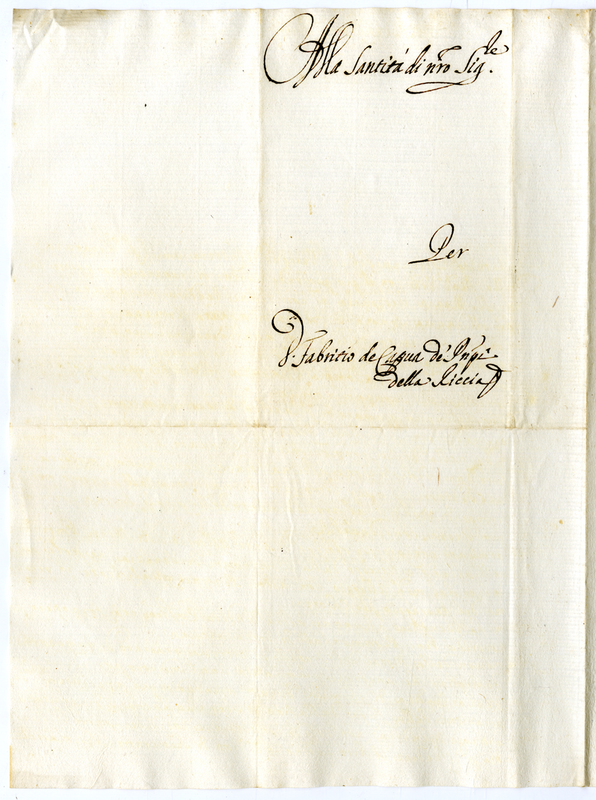 Alla Santità di nro Sig.re
Per
D. Fabritio de Capua de' Pnpi
della Riccia